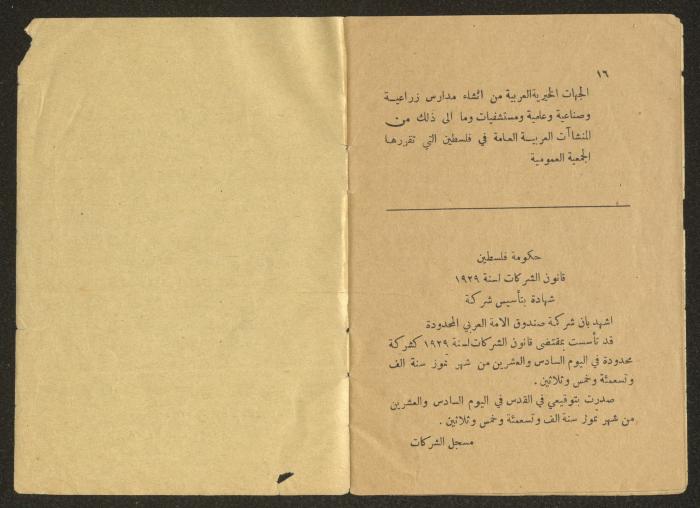 ١٦
الجهات الخيرية العربية من انشاء مدارس زراعية
وصناعية وعلمية ومستشفيات وما الى ذلك من
المنشاآت العربية العامة في فلسطين التي تقررها
الجمعية العمومية
حكومة فلسطين
قانون الشركات لسنة ١٩٢٩
شهادة بتأسيس شركة
اشهد بان شركة صندوق الامة العربي المحدودة
قد تأسست بمقتضى قانون الشركات لسنة ١٩٢٩ كشركة
محدودة في اليوم السادس والعشرين من شهر تموز سنة الف
وتسعمئة وخمس وثلاثين .
صدرت بتوقيعي في القدس في اليوم السادس والعشرين
من شهر تموز سنة الف وتسعمئة وخمس وثلاثين .
مسجل الشركات